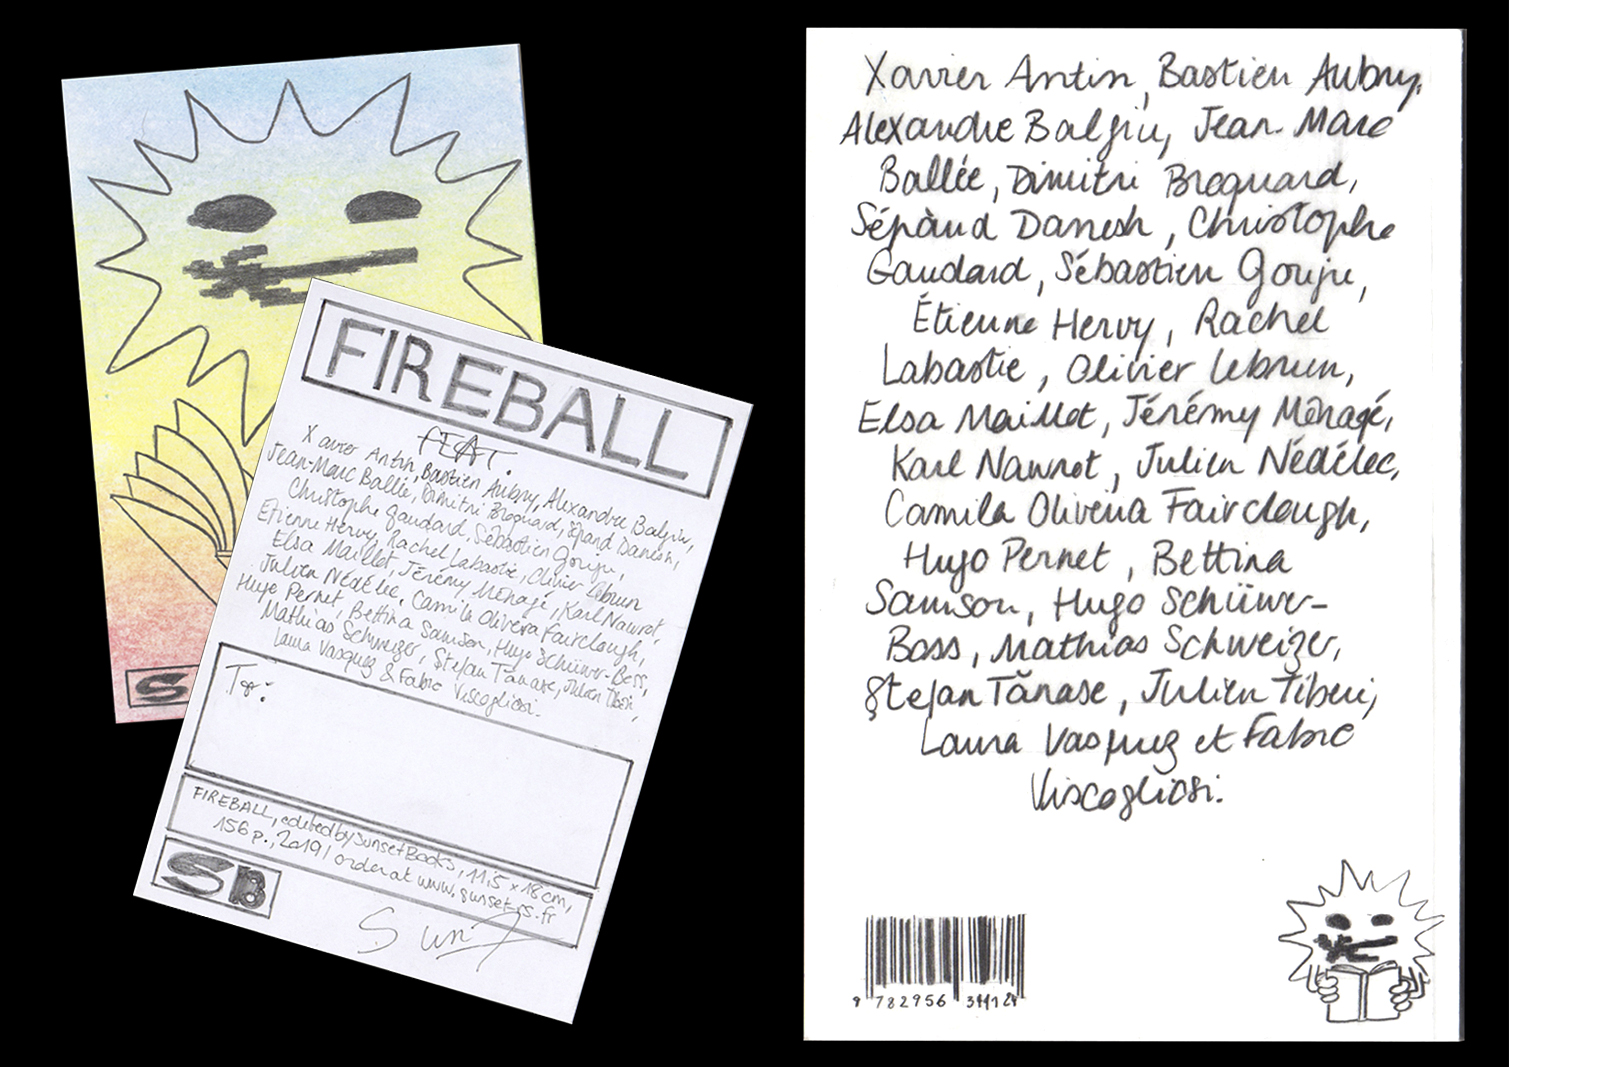 S
FIREBALL
FEAT.
Xavier Antin, Bastien Aubry, Alexandre Balgiu,
Jean-Marc Ballée, Dimitri Broquard, Sépànd Danesh,
Christophe Gaudard, Sébastien Gouju,
Étienne Hervy, Rachel Labastie, Olivier Lebrun
Elsa Maillot, Jérémy Mènagé, Karl Nawrot,
Julien Nédélec, Camila Oliveira Fairclough,
Hugo Pernet, Bettina Samson, Hugo Schüwer-Boss,
Mathias Schweizer, Ștefan Tănase, Julien Tiberi,
Laura Vasquez & Fabio Viscogliosi.
To:
FIREBALL, edited by Sunset Books, 11,5 x 18 cm,
156 p., 2019 / order at www.sunset-rs.fr
SB
Sun 7
Xavier Antin, Bastien Aubry,
Alexandre Balgiu, Jean-Marc
Ballée, Dimitri Broquard,
Sépànd Danesh, Christophe
Gaudard, Sébastien Gouju,
Étienne Hervy, Rachel
Labastie, Olivier Lebrun,
Elsa Maillot, Jérémy Mènagé,
Karl Nawrot, Julien Nédélec,
Camila Oliveira Fairclough,
Hugo Pernet, Bettina
Samson, Hugo Schüwer-
Boss, Mathias Schweizer,
Ștefan Tănase, Julien Tiberi,
Laura Vasquez et Fabio
Viscogliosi.
9 782956 344124